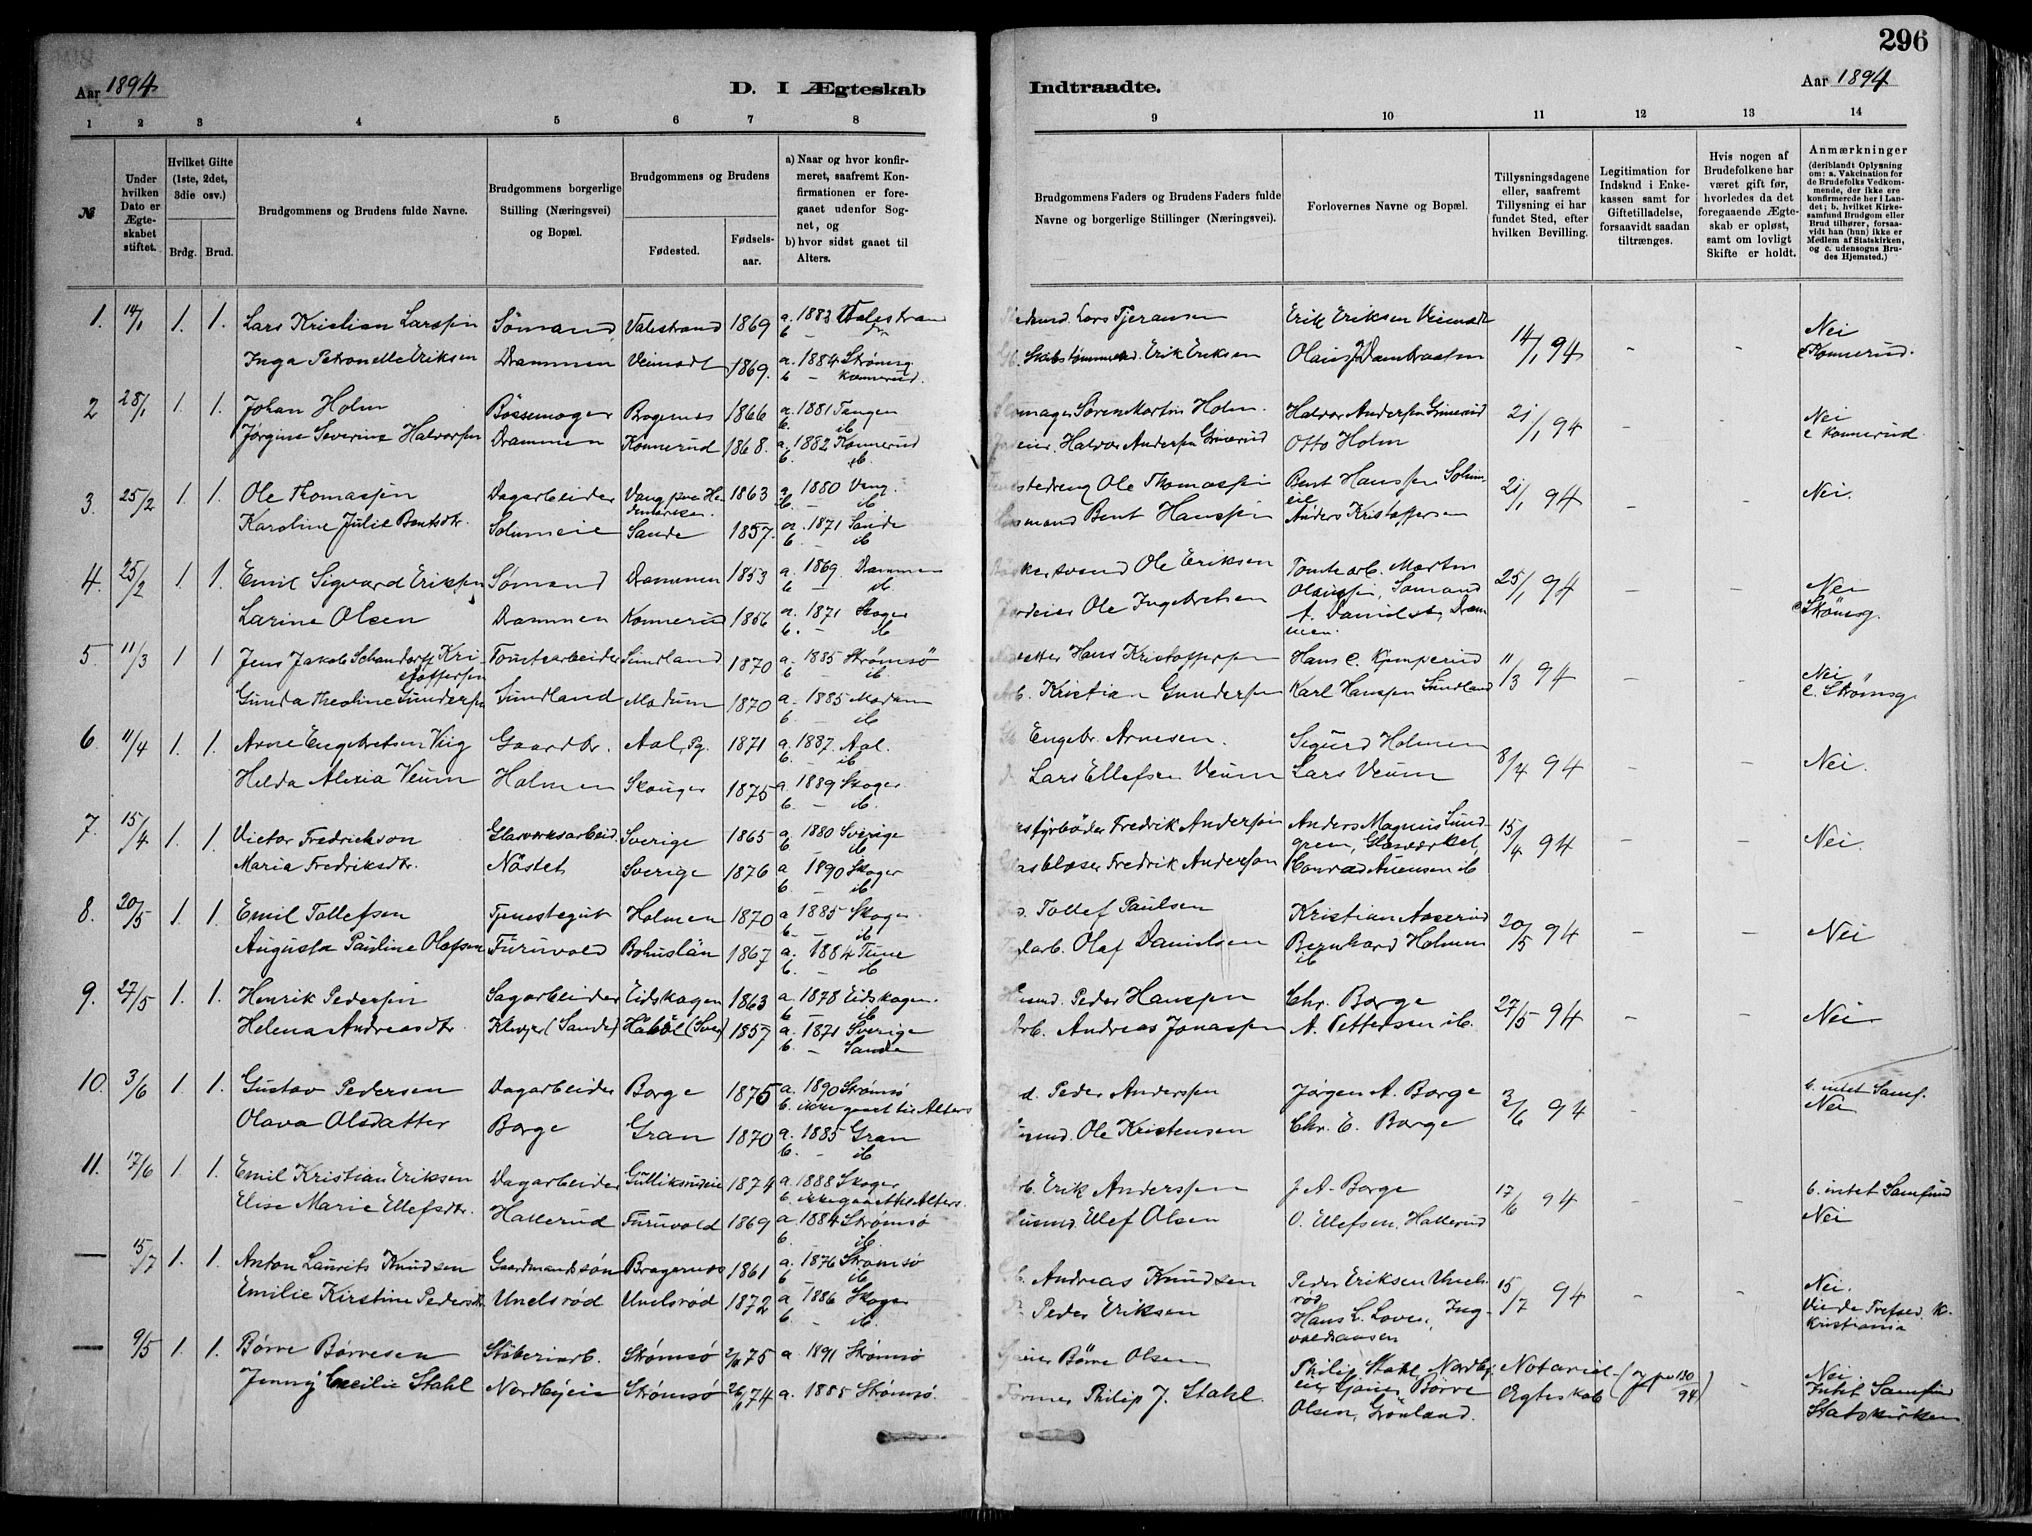 296
Aar 1894
D. I Ægteskab
Indtraadte.
Aar 1894
1 2 3 4 5 6 7 8 9 10 11 12 13 14
№
Under hvilken Dato er Ægteskabet stiftet.
Hvilket Gifte (1ste, 2det, 3die osv.)
Brdg. Brud.
Brudgommens og Brudens fulde Navne.
Brudgommens borgerlige Stilling (Næringsvei) og Bopæl.
Brudgommens og Brudens
Fødested.
Fødsels-aar.
a) Naar og hvor konfirmeret, saafremt Konfirmationen er foregaaet udenfor Sognet, og
b) hvor sidst gaaet til Alters.
Brudgommens Faders og Brudens Faders fulde Navne og borgerlige Stillinger (Næringsvei).
Forlovernes Navne og Bopæl.
Tillysningsdagene eller, saafremt Tillysning ei har fundet Sted, efter hvilken Bevilling.
Legitimation for Indskud i Enkekassen samt for Giftetilladelse, forsaavidt saadan tiltrænges.
Hvis nogen af Brudefolkene har været gift før, hvorledes da det foregaaende Ægteskab er opløst, samt om lovligt Skifte er holdt.
Anmærkninger
(deriblandt Oplysning om: a. Vakcination for de Brudefolks Vedkommende, der ikke ere konfirmerede her i Landet; b. hvilket Kirkesamfund Brudgom eller Brud tilhører, forsaavidt han (hun) ikke er Medlem af Statskirken, og c. udensogns Brudes Hjemsted.)
1. 14/1 1. 1. Lars Kristian Larssen Sømand Valestrand 1869 a. 1883 Valestrand Lars Tjeransen Erik Eriksen 14/1 94 - - Nei
Inga Petronelle Eriksen Drammen 1869. a. 1884 Strømsg. b. - Konnerud. Erik Eriksen c Konnerud.
2 28/1 1. 1. Johan Holm Bøssemager Bragernes 1866 a. 1881 Tangen b. ib Søren Martin Holm. Halvor Andersen Grinerud 21/1 94 - - Nei
Jørgine Severine Halvorsen Drammen Konnerud 1868. a. 1882 Konnerud b. ib. Halvor Andersen Grinerud Otto Holm c Konnerud.
3. 25/2 1. 1. Ole Thomassen Dagarbeider Vang paa Hedemarken. 1863 a. 1880 Vang. b. - ib Ole Thomassen Bent Hanssen Solumeie 21/1 94 - - Nei.
Karoline Julie Bentsdtr. Solumeie Sande 1857. a. 1871 Sande b. - ib Bent Hanssen Anders Kristoffersen
4. 25/2 1 1. Emil Sigvard Erikssen Sømand Drammen 1853 a. 1869. Drammen b - ib. Ole Eriksen Tomtearb. Morten 25/1 94 - - Nei
Larine Olsen Drammen Konnerud 1856 a. 1871 Skoger b. - ib Ole Ingebretsen Olaussen, Sømand A. Danielsen, Drammen. c Strömsg.
5. 11/3 1 1 Jens Jakob Schandorff Kristoffersen Tomtearbeider Sundland 1870 a. 1885 Strømsö b - ib. Hans Kristoffersen Hans C. Kjumperud 11/3 94 - - Nei
Gunda Theoline Gundersen Sundland Modum 1870 a. 1885 Modum b. - ib Arb. Kristian Gundersen Karl Hanssen Sundland c. Strømsg
6. 11/4 1. 1. Arne Engebretsen Viig Gaardbr. Aal Pg. 1871 a. 1887. Aal. b. - ib. Engebr. Arnesen. Sigurd Holmen 8/4 94 - - Nei.
Helda Alexia Veum Holmen Skouger 1875 a. 1889 Skoger b. - ib. Lars Ellefsen Veum Lars Veum
7. 15/4 1. 1. Victor Fredrickson Glasværksarbeid. Sverige 1865 a. 1880 Sverige b - ib Fredrik Anderson Anders Magnus Lundgren, Glasværket, 15/4 94 - - Nei.
Maria Fredriksdtr. Nöstet Sverige 1876 a 1890 Skoger b. - ib Fredrik Anderson Conrad Auensen ib
8. 20/5 1. 1. Emil Tollefsen Tjenestegut Holmen 1870 a. 1885 Skoger b. - ib. Tollef Paulsen Kristian Aaserud 20/5 94 - - Nei
Augusta Pauline Olafsen Furuvold Bohuslän 1867 a. 1884 Tune b. - ib Olaf Danielsen Bernhard Holmen ib
9. 27/5 1. 1. Henrik Pedersen Sagarbeider Eidskogen 1863 a. 1878 Eidskogen. b - ib Peder Hanssen Chr. Borge 27/5 94 - - Nei
Helena Andreasdtr. Klevjer (Sande) Håböl (Sver) 1857 a. 1871 Sverige b. - Sande Arb. Andreas Jonassen A. Pettersen ib.
10. 3/6 1. 1. Gustav Pedersen Dagarbeider Borge 1875 a. 1890 Strømsø b. ikke gaaet til Alters Peder Anderssen Jørgen A. Borge 3/6 94 - - b. intet Samf.
Olava Olsdatter Borge Gran 1870 a. 1885 Gran b. - ib Ole Kristensen Chr. E. Borge Nei
11. 17/6 1. 1. Emil Kristian Eriksen Dagarbeider Gulliksrudeie 1874 a. 1888 Skoger b. ikke gaaet til Alters. Arb. Erik Anderssen J A. Borge 17/6 94 - - b. intet Samfund
Elise Marie Ellefsdtr. Hallerud Furuvold 1869 a. 1884 Strømsø b. ib. Ellef Olsen O. Ellefsen, Hallerud Nei
— 15/7 1. 1. Anton Laurits Knudsen Gaardmandssön Bragernes 1861 a. 1876 Strømsø b - ib. Andreas Knudsen Peder Eriksen Unelsrød 15/7 94 - - Nei.
Emilie Kirstine Pedersdtr Unelsrød Unelsrød 1872 a 1886 Skoger b. - ib. Peder Eriksen Hans L. Lover, Kristiania
— 9/5 1. 1. Børre Børresen Strømsø 75 a. 1891 Strømsø Børre Olsen Philip Stahl, Nordby- Notariel - Nei.
Jenny Cecilie Stahl Nordbyeie Strømsø 74 a. 1885 Strømsø. Former Philip J. Stahl. eie Børre Olsen, Grönland. Ægteskab Intet Samfund Statskirken